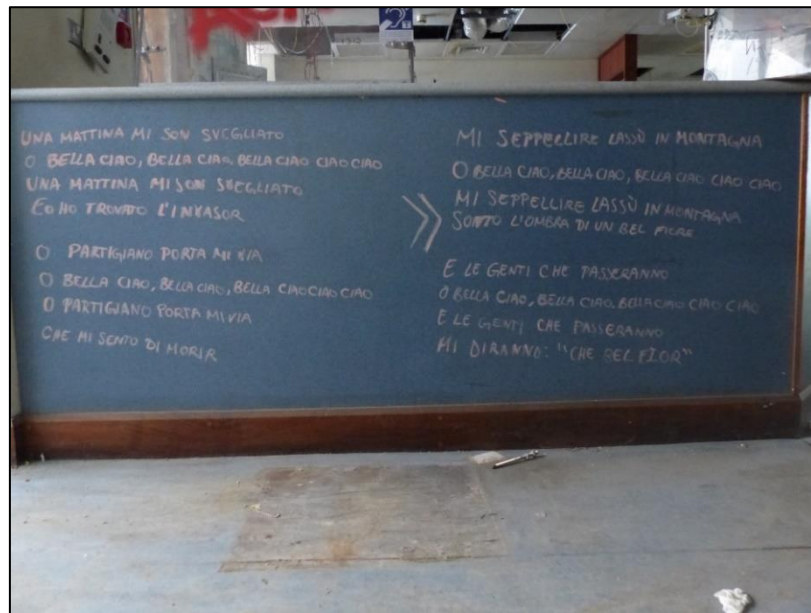 UNA MATTINA MI SON SVEGLIATO
O BELLA CIAO, BELLA CIAO, BELLA CIAO CIAO CIAO
UNA MATTINA MI SON SVEGLIATO
EO HO TROVATO L'INVASOR
O PARTIGIANO PORTA MI VIA
O BELLA CIAO, BELLA CIAO, BELLA CIAO CIAO CIAO
O PARTIGIANO PORTA MI VIA
CHE MI SENTO DI MORIR
MI SEPPELLIRE LASSÙ IN MONTAGNA
O BELLA CIAO, BELLA CIAO, BELLA CIAO CIAO CIAO
MI SEPPELLIRE LASSÙ IN MONTAGNA
SOTTO L'OMBRA DI UN BEL FIORE
E LE GENTI CHE PASSERANNO
O BELLA CIAO, BELLA CIAO, BELLA CIAO CIAO CIAO
E LE GENTI CHE PASSERANNO
MI DIRANNO: "CHE BEL FIOR"